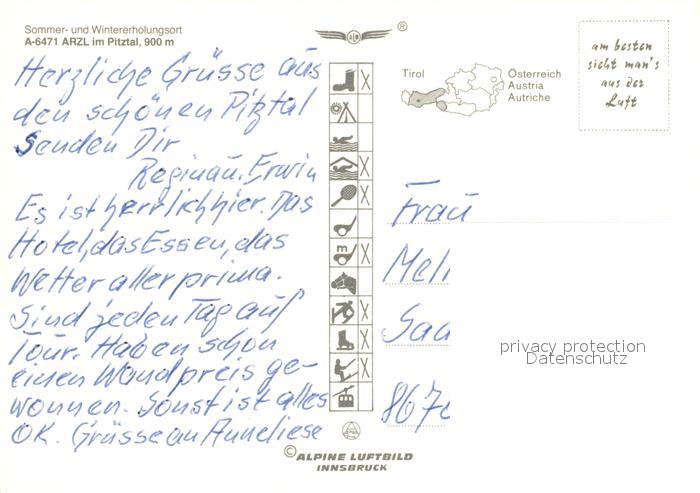 Sommer- und Wintererholungsort
A-6471 ARZL im Pitztal, 900 m
Herzliche Grüsse aus
den schönen Pitztal
senden Dir
Regina u. Erwin
Es ist herrlich hier. Das
Hotel, das Essen, das
Wetter aller prima.
Sind jeden Tag auf
Tour. Haben schon
einen Wandpreis ge-
wonnen. Sonst ist alles
OK. Grüsse an Anneliese
®
m
© ALPINE LUFTBILD
INNSBRUCK
Tirol
Österreich
Austria
Autriche
am besten
sieht man's
aus der
Luft
Frau
Meli
Saa
867
privacy protection
Datenschutz